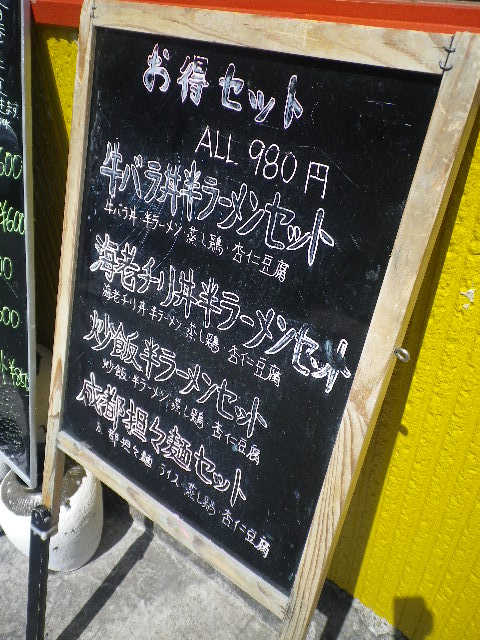 お得セット
ALL 980円
牛バラ丼半ラーメンセット
牛バラ丼・半ラーメン 蒸し鶏・杏仁豆腐
海老チリ丼半ラーメンセット
海老チリ丼 半ラーメン 蒸し鶏 杏仁豆腐
炒飯半ラーメンセット
炒飯・半ラーメン 蒸し鶏 杏仁豆腐
成都担々麺セット
成都担々麺 ライス 蒸し鶏 杏仁豆腐